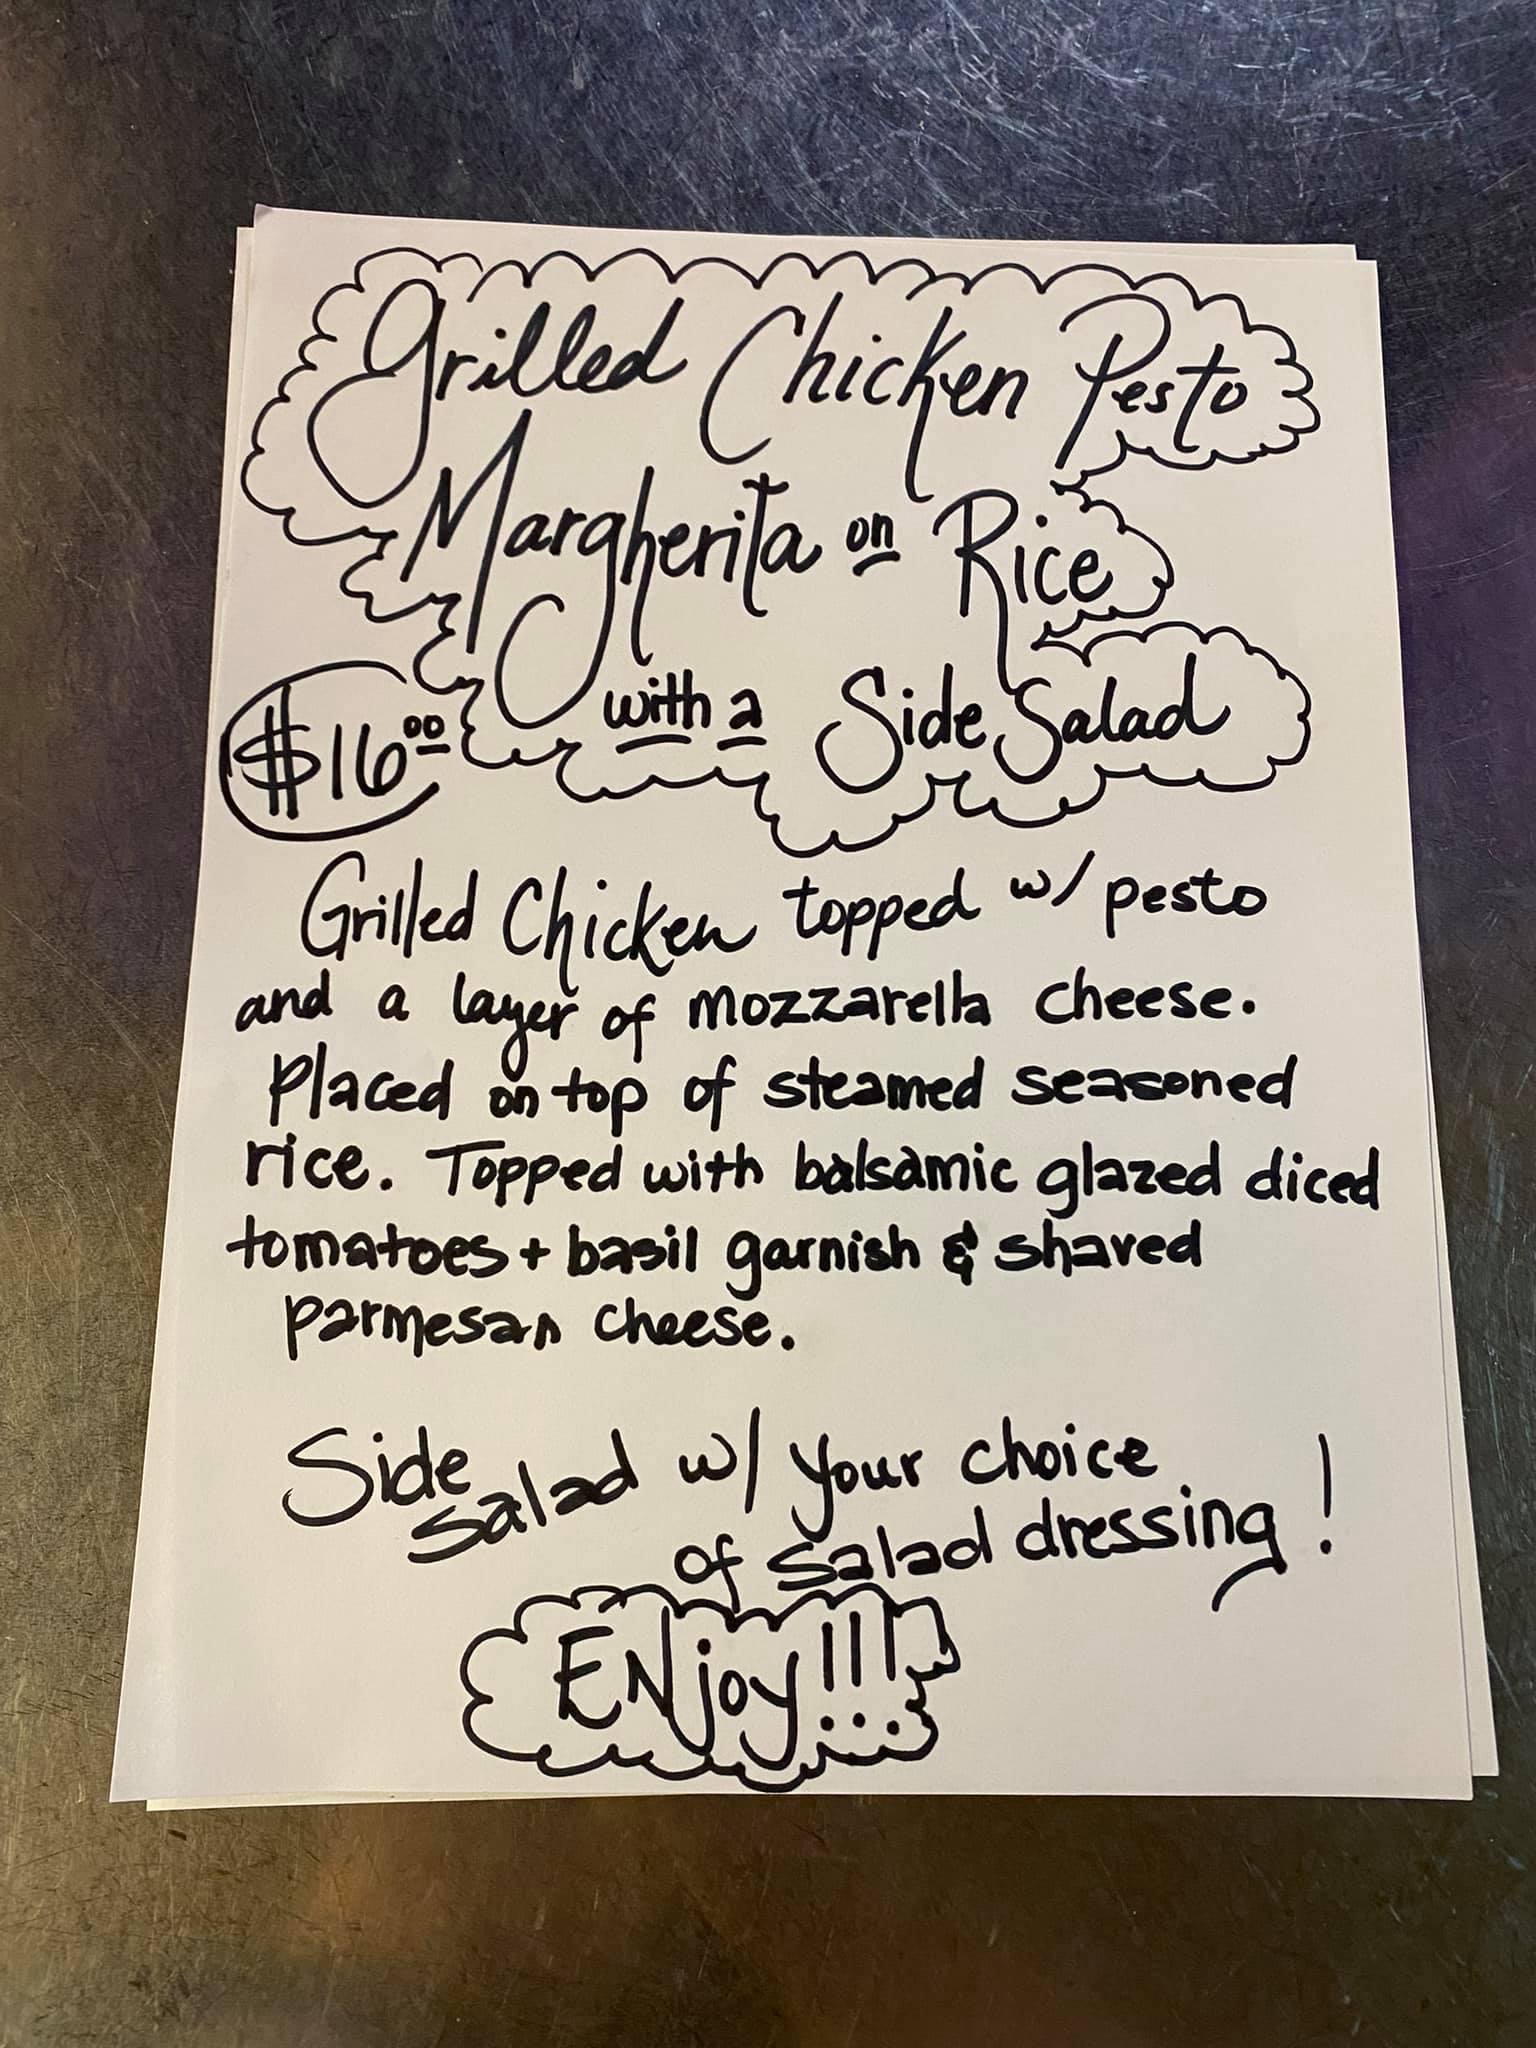 Grilled Chicken Pesto
Margherita on Rice
with a Side Salad
$16.00
Grilled Chicken topped w/ pesto
and a layer of mozzarella cheese.
Placed on top of steamed seasoned
rice. Topped with balsamic glazed diced
tomatoes + basil garnish & shaved
parmesan cheese.
Side salad w/ your choice
of salad dressing!
ENjoy!!!